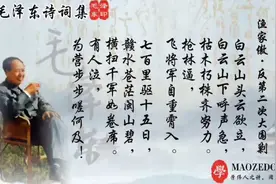 毛泽东诗词集
渔家傲·反第二次大围剿
白云山头云欲立,
白云山下呼声急,
枯木朽株齐努力。
枪林逼,
飞将军自重霄入。
七百里驱十五日,
赣水苍茫闽山碧,
横扫千军如卷席。
有人泣,
为营步步嗟何及!
毛
學
MAOZEDO